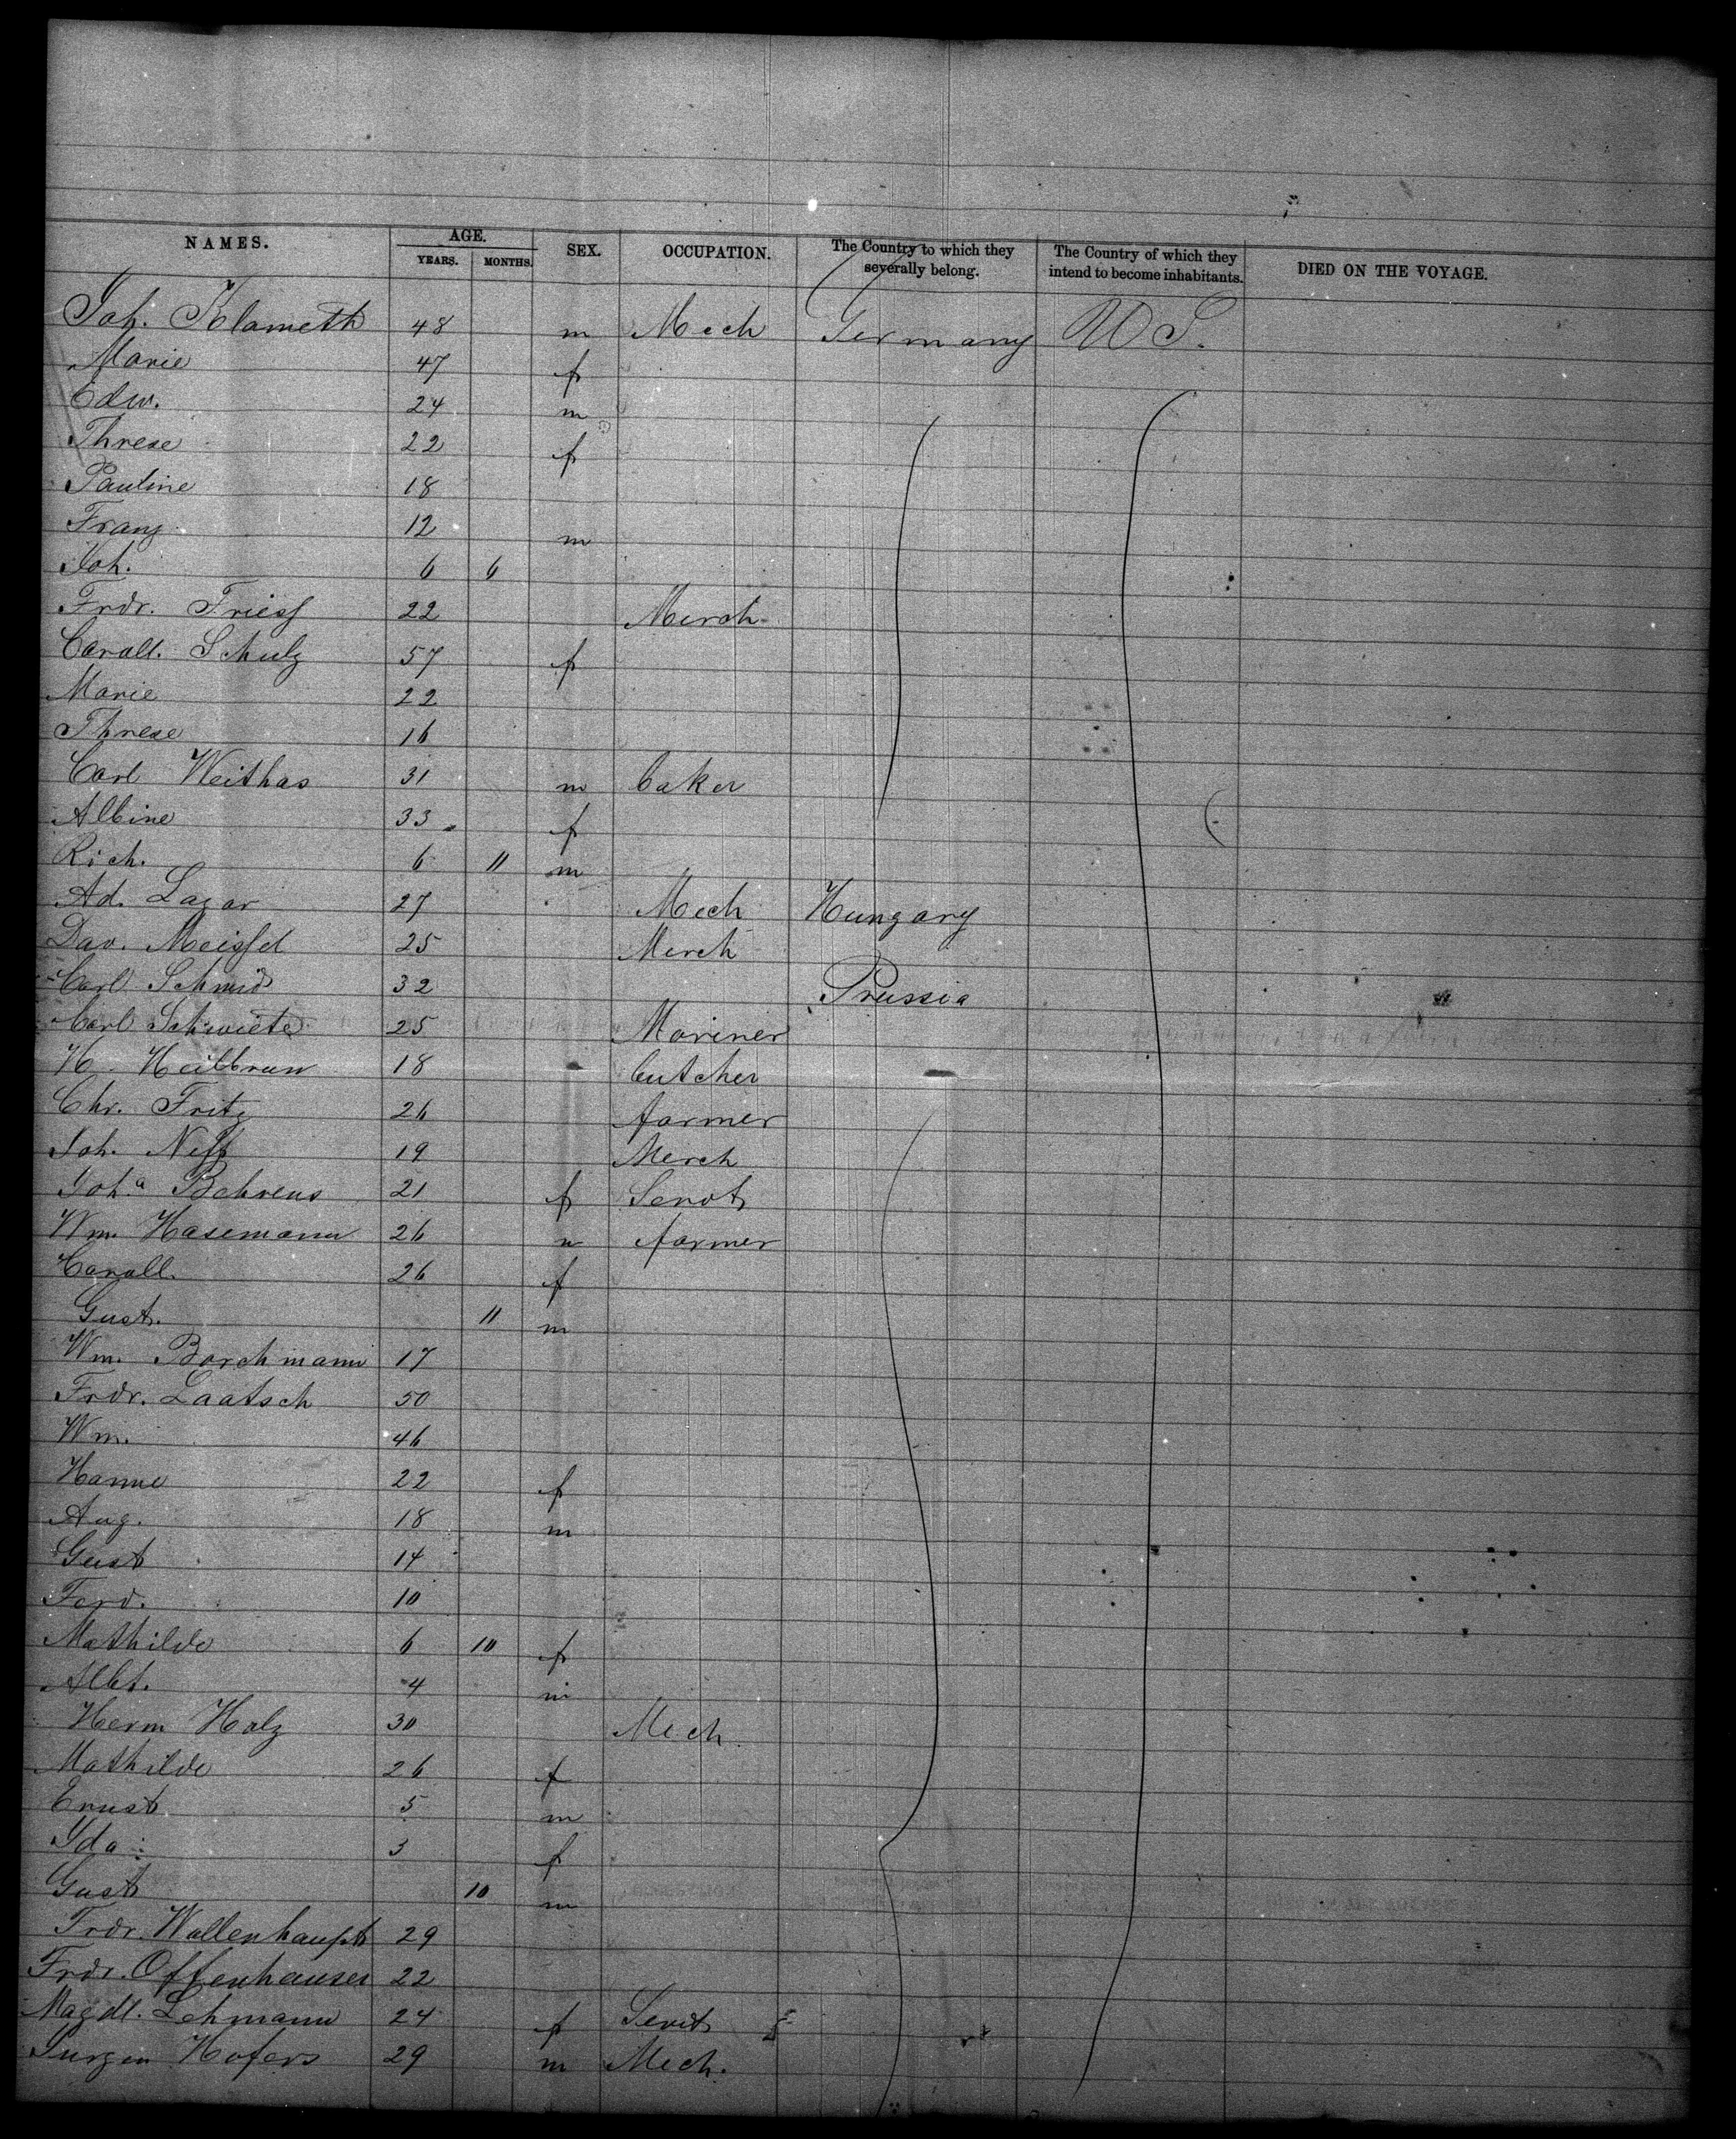 NAMES. AGE. YEARS. MONTHS. SEX. OCCUPATION. The Country to which they severally belong. The Country of which they intend to become inhabitants. DIED ON THE VOYAGE.
Joh. Klameth 48 m Mech Germany U S.
Marie 47 f
Edw. 24 m
Threse 22 f
Pauline 18
Franz 12 m
Joh. 6 6
Frdr. Triess 22 Merch
Caroll. Schulz 57 f
Marie 22
Threse 16
Carl Weithas 31 m baker
Albine 33 f
Rich. 6 11 m
Ad. Lazar 27 Mech Hungary
Dav. Meissel 25 Merch
Carl Schmid 32 Prussia
Carl Schwiete 25 Mariner
H. Heilbrun 18 butcher
Chr. Fritz 26 farmer
Joh. Neff 19 Merch
Joh.a Behrens 21 f Servt
Wm. Hasemann 26 m farmer
Caroll. 26 f
Gust. 11 m
Wm. Borchmann 17
Frdr. Laatsch 50
Wm. 46
Hanne 22 f
Aug. 18 m
Gust 14
Ferd. 10
Mathilde 6 10 f
Albt. 4 m
Herm Holz 30 Mech.
Mathilde 26 f
Ernst 5 m
Ida 3 f
Gust 10 m
Frdr. Wollenhaupt 29
Frdr. Offenhauser 22
Magdl. Lehmann 24 f Servt
Jurgen Hofers 29 m Mech.